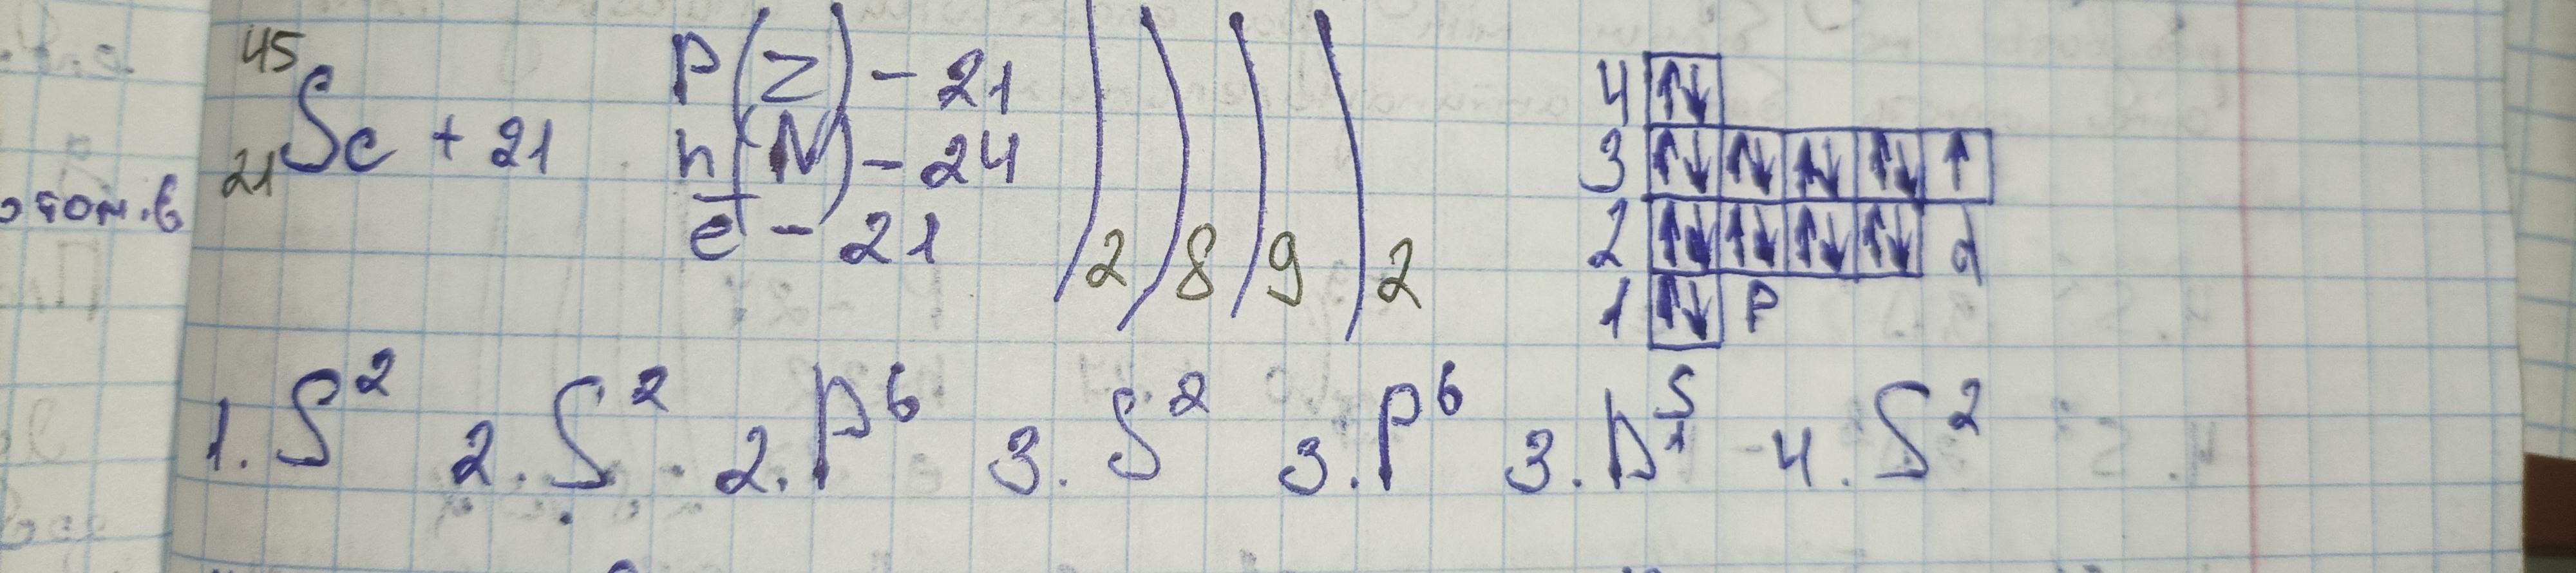 45
21 Sc + 21
P(Z) - 21
n(N) - 24
e̅ - 21
) 2 ) 8 ) 9 ) 2
4 ↑↓
3 ↑↓ ↑↓ ↑↓ ↑↓ ↑
2 ↑↓ ↑↓ ↑↓ ↑↓ d
1 ↑↓ P
S
1. S² 2. S² 2. P⁶ 3. S² 3. P⁶ 3. D¹ - 4. S²